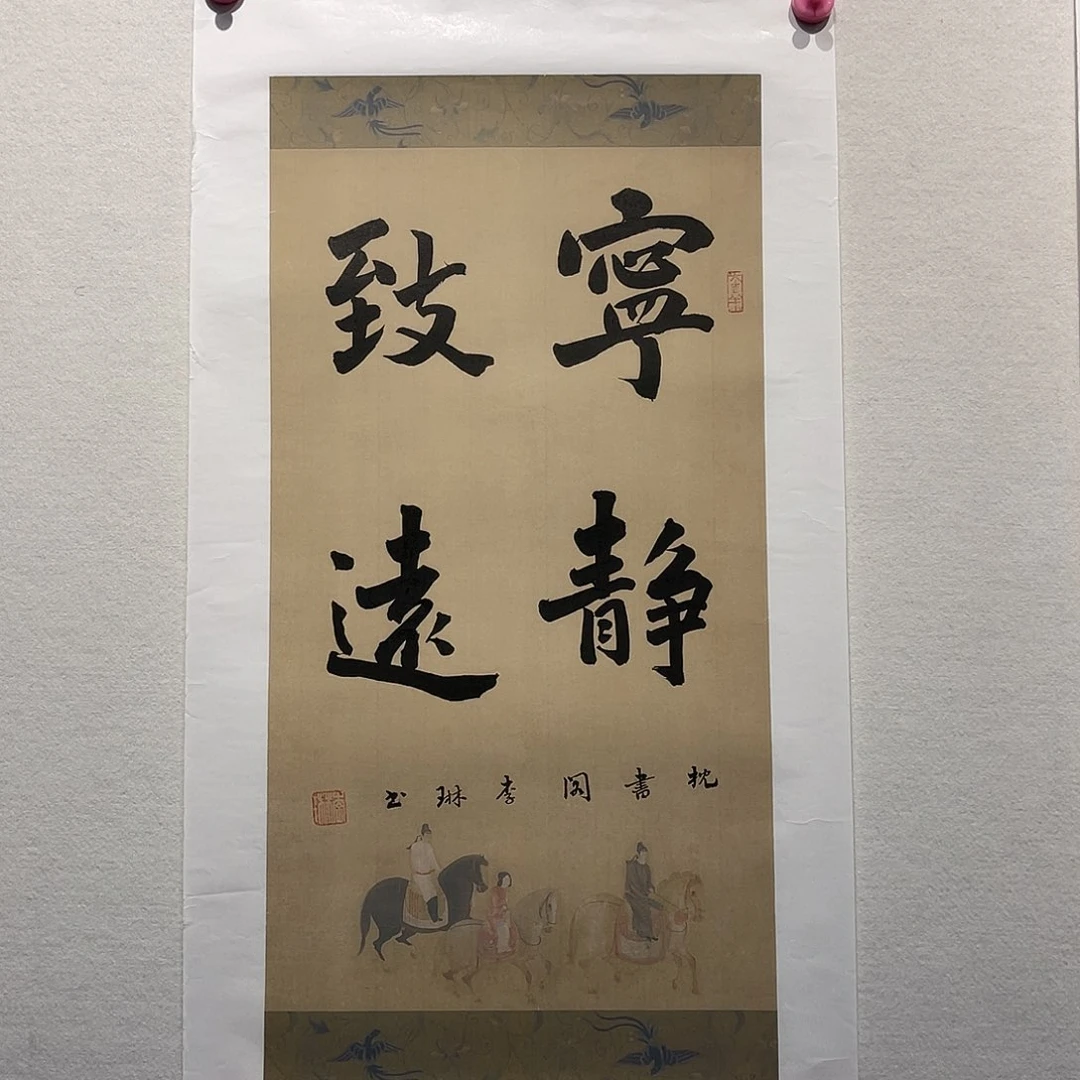 寧靜
致遠
枕書閣李琳书